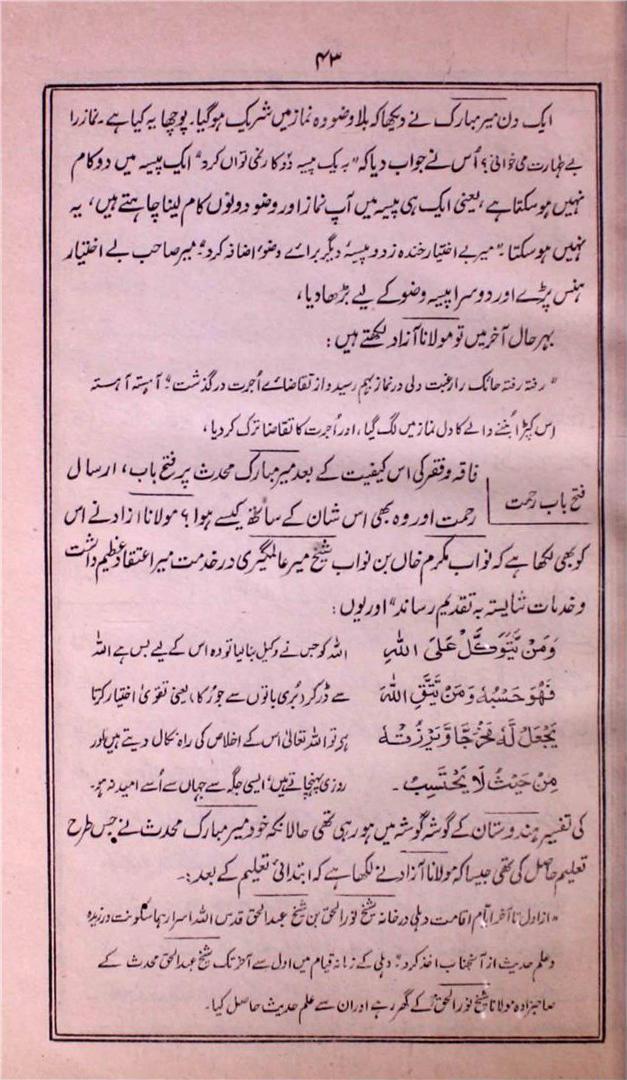 ۴۳
ایک دن میر مبارک نے دیکھا کہ بلا وضو وہ نماز میں شریک ہوگیا۔ پوچھا یہ کیا ہے۔ نماز را
بے طہارت می خوانی؟ اُس نے جواب دیا کہ "بہ یک پیسہ دُو کار نمی تواں کرد" ایک پیسہ میں دو کام
نہیں ہو سکتا ہے، یعنی ایک ہی پیسہ میں آپ نماز اور وضو دونوں کام لینا چاہتے ہیں، یہ
نہیں ہو سکتا۔ "میر بے اختیار خندہ زد و پیسۂ دیگر برائے وضوء اضافہ کرد" میر صاحب بے اختیار
ہنس پڑے اور دوسرا پیسہ وضو کے لیے بڑھا دیا،
بہرحال آخر میں تو مولانا آزاد لکھتے ہیں:
"رفتہ رفتہ حائک را رغبت دلی در نماز بہم رسید و از تقاضائے اُجرت درگذشت" آہستہ آہستہ
اس کپڑا بُننے والے کا دل نماز میں لگ گیا، اور اُجرت کا تقاضا ترک کر دیا،
فتح باب رحمت
فاقہ و فقر کی اس کیفیت کے بعد میر مبارک محدث پر فتح باب، ارسال
رحمت اور وہ بھی اس شان کے ساتھ کیسے ہوا؟ مولانا آزاد نے اس
کو بھی لکھا ہے کہ نواب مکرم خاں بن نواب شیخ میر عالمگیری در خدمت میر اعتقاد عظیم داشت
و خدمات شایستہ بہ تقدیم رساند" اور یوں:
وَمَنْ يَّتَوَكَّلْ عَلَى اللهِ اللہ کو جس نے وکیل بنا لیا تو وہ اس کے لیے بس ہے اللہ
فَهُوَ حَسْبُهٗ وَمَنْ يَّتَّقِ اللهَ سے ڈر کر بُری باتوں سے جو رُکا، یعنی تقویٰ اختیار کرتا
يَجْعَلْ لَّهٗ مَخْرَجًا وَّيَرْزُقْهُ ہی تو اللہ تعالیٰ اس کے اخلاص کی راہ نکال دیتے ہیں اور
مِنْ حَيْثُ لَا يَحْتَسِبُ۔ روزی پہنچاتے ہیں، ایسی جگہ سے جہاں سے اُسے امید نہ ہو۔
کی تفسیر ہندوستان کے گوشہ گوشہ میں ہو رہی تھی حالانکہ خود میر مبارک محدث نے جس طرح
تعلیم حاصل کی تھی جیسا کہ مولانا آزاد نے لکھا ہے کہ ابتدائی تعلیم کے بعد:۔
"از اول تا آخر ایام اقامت دہلی در خانہ شیخ نور الحق بن شیخ عبد الحق قدس اللہ اسرارہما سکونت ورزیدہ
و علم حدیث از آنجناب اخذ کرد" دہلی کے زمانہ قیام میں اول سے آخر تک شیخ عبد الحق محدث کے
صاحبزادہ مولانا شیخ نور الحقؒ کے گھر رہے اور ان سے علم حدیث حاصل کیا۔